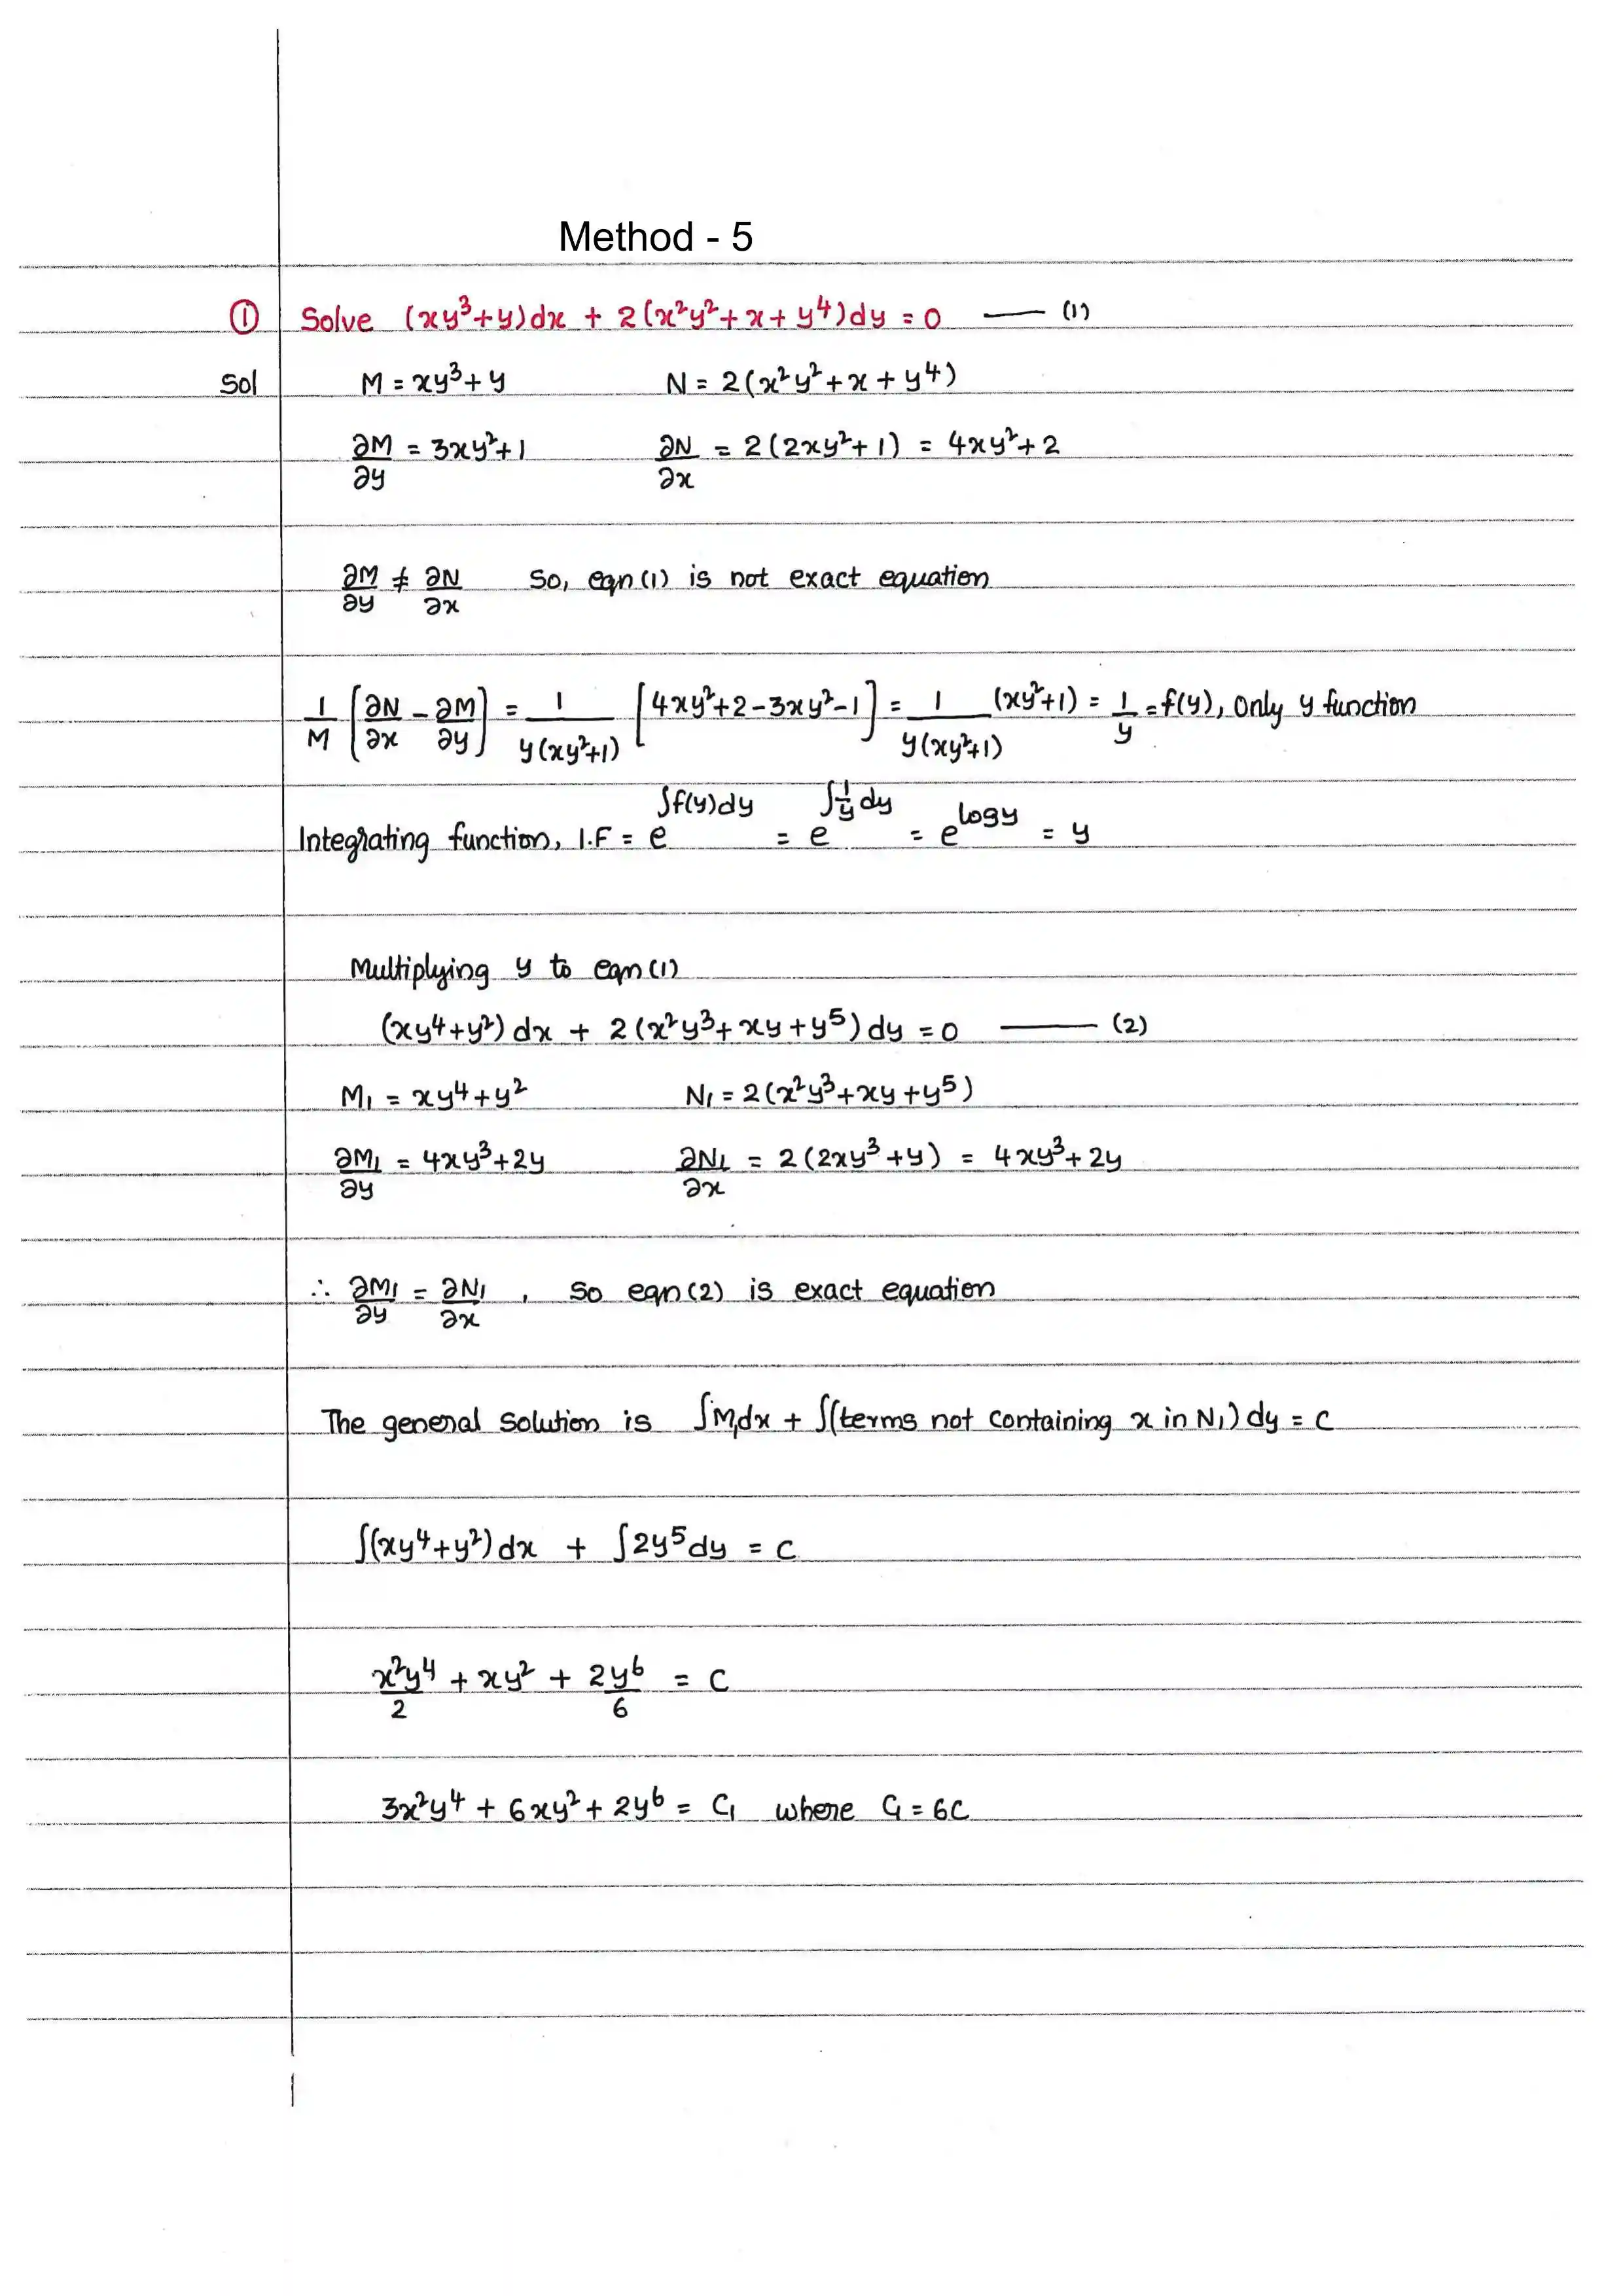 Method - 5
① Solve (xy³+y)dx + 2(x²y²+x+y⁴)dy = 0 —— (1)
Sol M = xy³+y N = 2(x²y²+x+y⁴)
∂M/∂y = 3xy²+1 ∂N/∂x = 2(2xy²+1) = 4xy²+2
∂M/∂y ≠ ∂N/∂x So, eqn(1) is not exact equation
1/M [∂N/∂x - ∂M/∂y] = 1/y(xy²+1) [4xy²+2-3xy²-1] = 1/y(xy²+1) (xy²+1) = 1/y = f(y), Only y function
Integrating function, I.F = e^∫f(y)dy = e^∫1/y dy = e^logy = y
Multiplying y to eqn(1)
(xy⁴+y²)dx + 2(x²y³+xy+y⁵)dy = 0 ——— (2)
M₁ = xy⁴+y² N₁ = 2(x²y³+xy+y⁵)
∂M₁/∂y = 4xy³+2y ∂N₁/∂x = 2(2xy³+y) = 4xy³+2y
∴ ∂M₁/∂y = ∂N₁/∂x , So eqn(2) is exact equation
The general solution is ∫M₁dx + ∫(terms not containing x in N₁)dy = C
∫(xy⁴+y²)dx + ∫2y⁵dy = C
x²y⁴/2 + xy² + 2y⁶/6 = C
3x²y⁴ + 6xy² + 2y⁶ = C₁ where C₁ = 6C